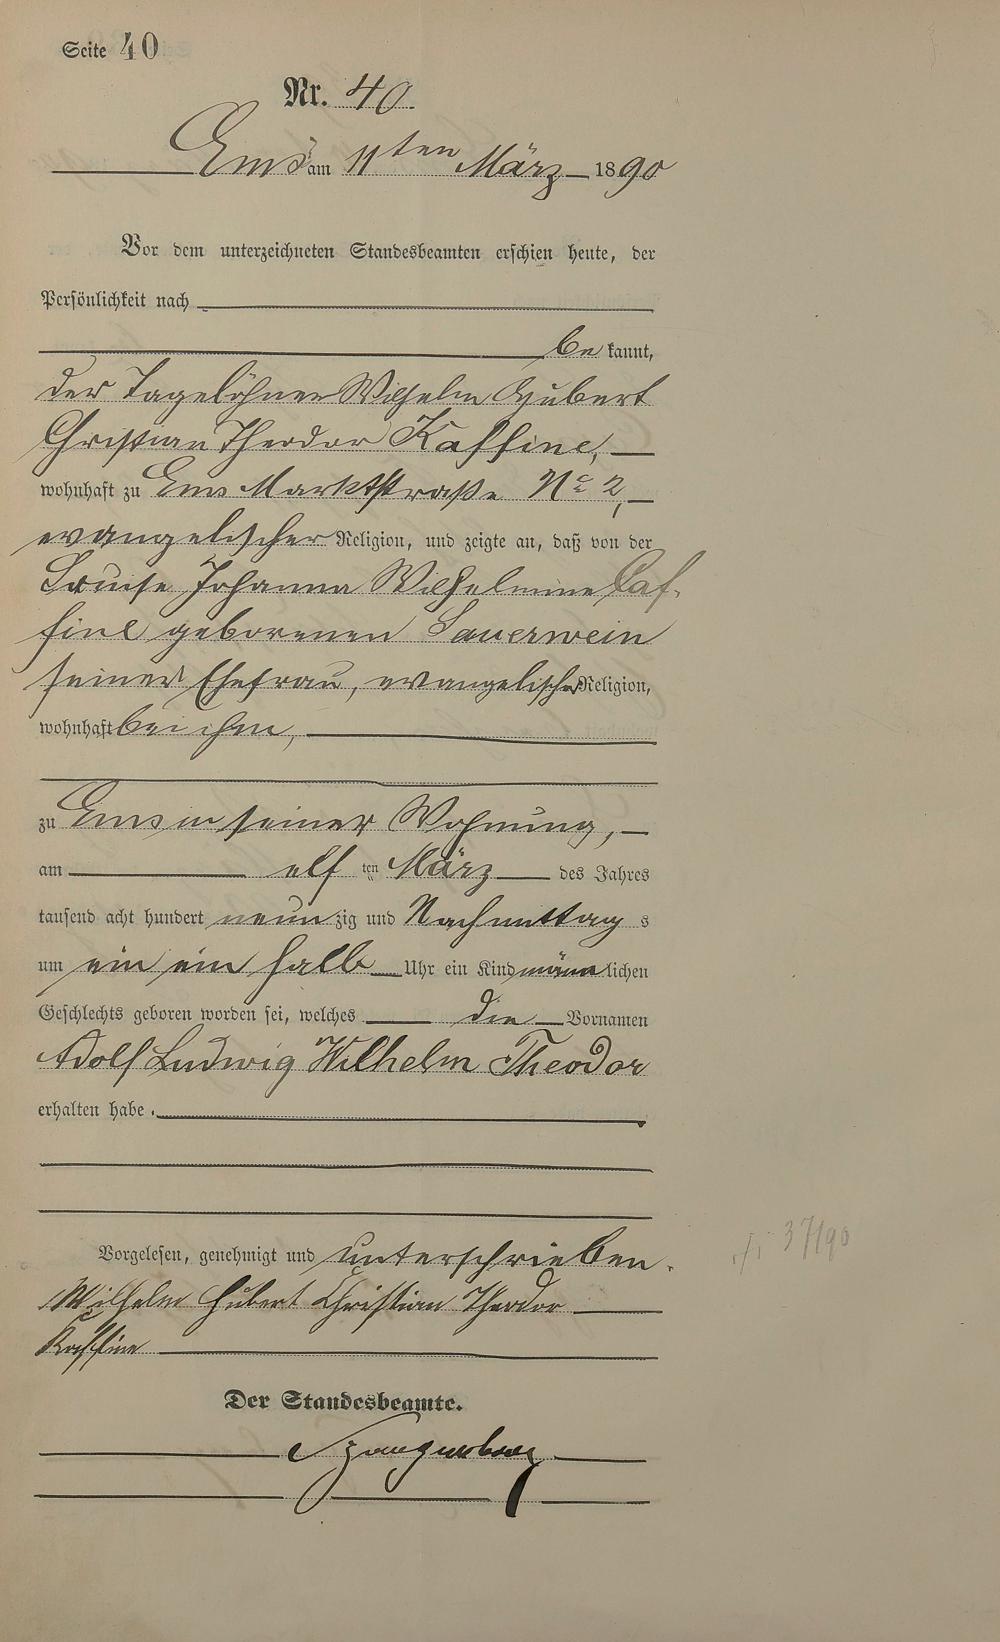 Seite 40
Nr. 40.
Ems am 11ten März 1890
Vor dem unterzeichneten Standesbeamten erschien heute, der
Persönlichkeit nach
be kannt,
der Tagelöhner Wilhelm Hubert
Christian Theodor Kaffine,
wohnhaft zu Ems Marktstraße No 2,
evangelischer Religion, und zeigte an, daß von der
Louise Johanna Wilhelmine Caf-
fine geborenen Sauerwein
seiner Ehefrau, evangelischer Religion,
wohnhaft bei ihm,
zu Ems in seiner Wohnung,
am elf ten März des Jahres
tausend acht hundert neun zig und Nachmittag s
um ein ein halb Uhr ein Kind männ lichen
Geschlechts geboren worden sei, welches die Vornamen
Adolf Ludwig Wilhelm Theodor
erhalten habe.
Vorgelesen, genehmigt und unterschrieben.
Wilhelm Hubert Christian Theodor
Kaffine
Der Standesbeamte.
Spangenberg
37/90